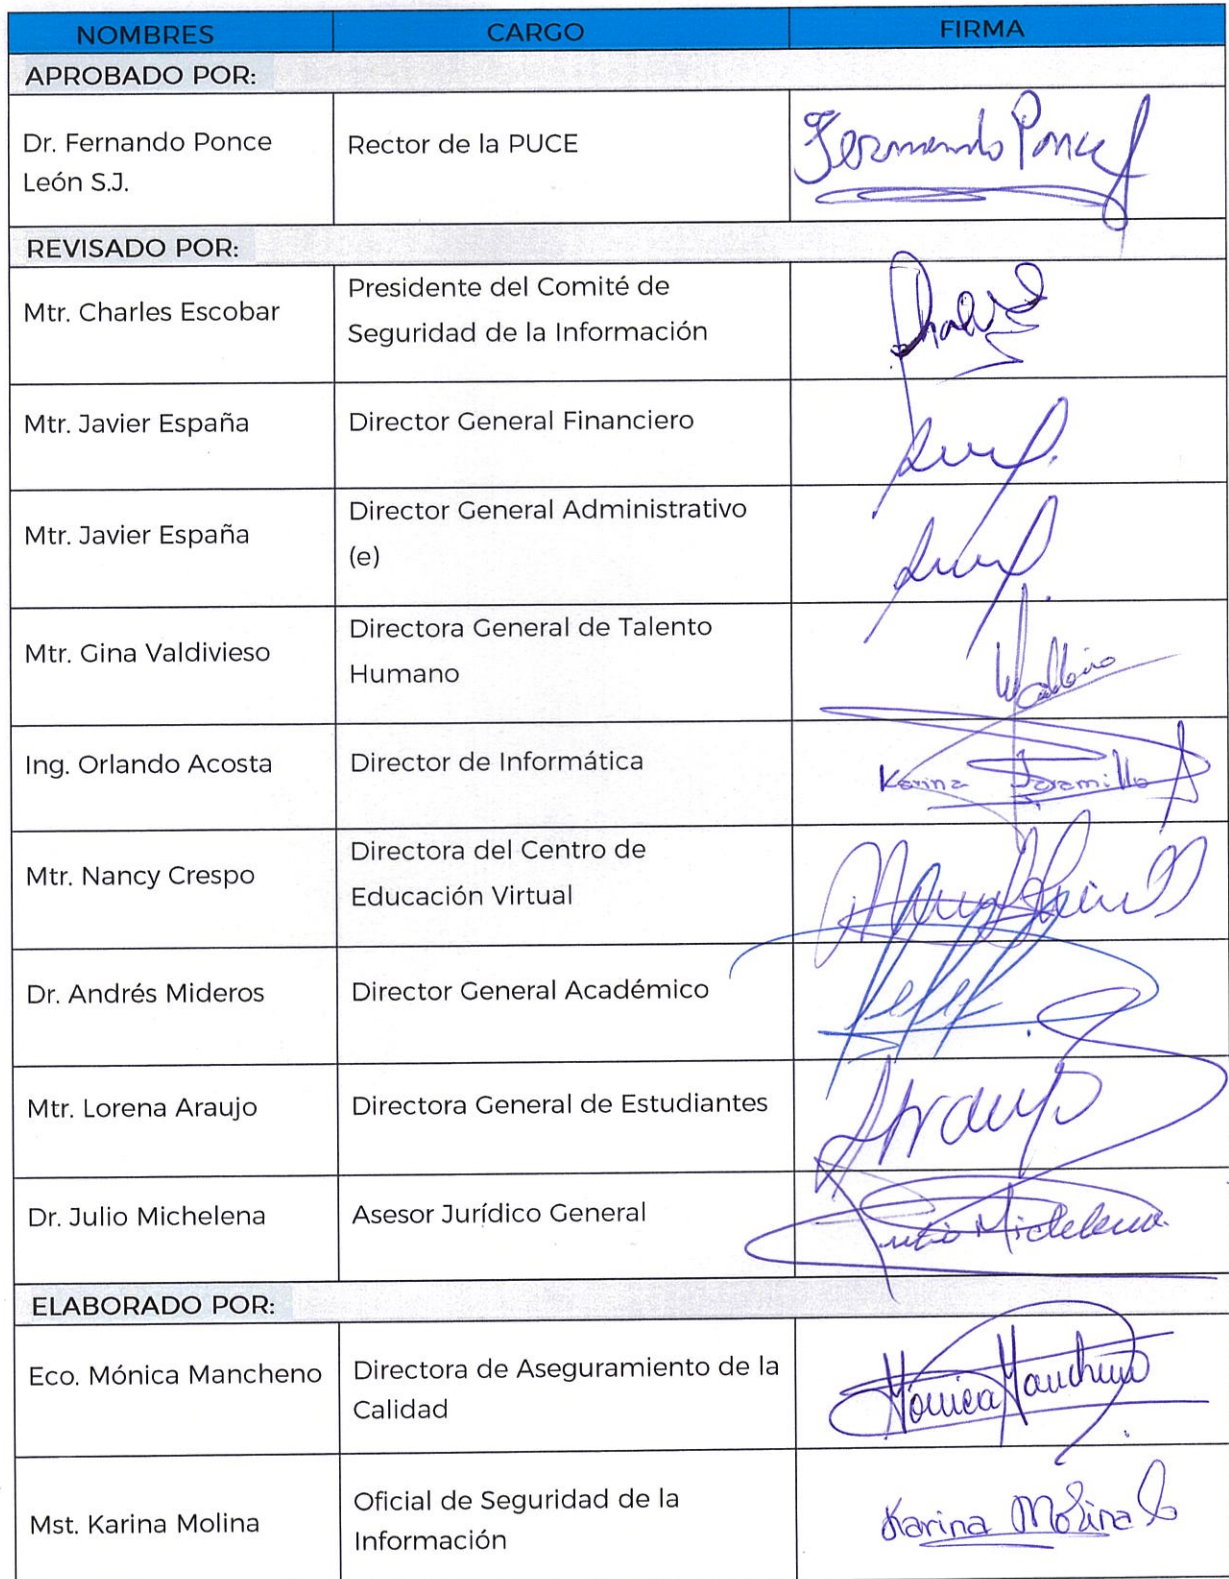 NOMBRES CARGO FIRMA
APROBADO POR:
Dr. Fernando Ponce
León S.J.
Rector de la PUCE
Fernando Ponce
REVISADO POR:
Mtr. Charles Escobar
Presidente del Comité de
Seguridad de la Información
Mtr. Javier España
Director General Financiero
Mtr. Javier España
Director General Administrativo
(e)
Mtr. Gina Valdivieso
Directora General de Talento
Humano
Ing. Orlando Acosta
Director de Informática
Karina Jaramillo
Mtr. Nancy Crespo
Directora del Centro de
Educación Virtual
Dr. Andrés Mideros
Director General Académico
Mtr. Lorena Araujo
Directora General de Estudiantes
Araujo
Dr. Julio Michelena
Asesor Jurídico General
Julio Michelena
ELABORADO POR:
Eco. Mónica Mancheno
Directora de Aseguramiento de la
Calidad
Mónica Mancheno
Mst. Karina Molina
Oficial de Seguridad de la
Información
Karina Molina